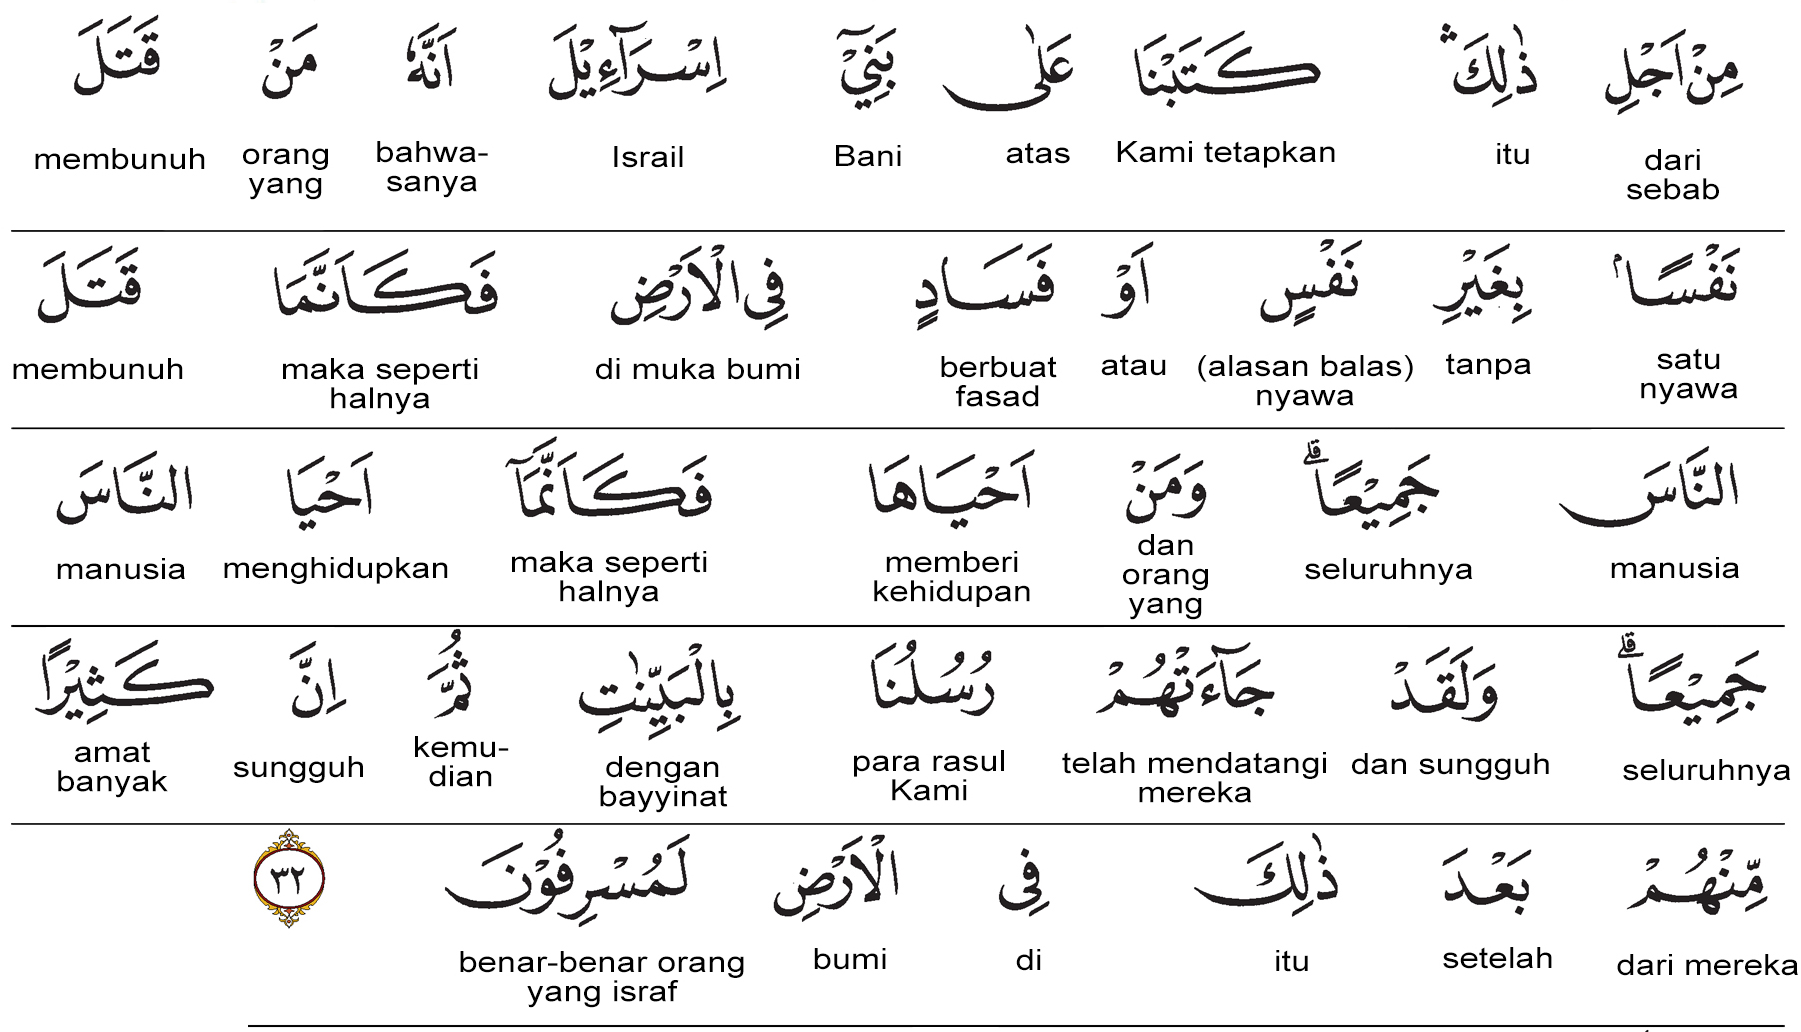 مِنْ اَجْلِ ذٰلِكَ ۛ كَتَبْنَا عَلٰى بَنِيْٓ اِسْرَاۤءِيْلَ اَنَّهٗ مَنْ قَتَلَ
dari sebab itu Kami tetapkan atas Bani Israil bahwa-sanya orang yang membunuh
نَفْسًاۢ بِغَيْرِ نَفْسٍ اَوْ فَسَادٍ فِى الْاَرْضِ فَكَاَنَّمَا قَتَلَ
satu nyawa tanpa (alasan balas) nyawa atau berbuat fasad di muka bumi maka seperti halnya membunuh
النَّاسَ جَمِيْعًاۗ وَمَنْ اَحْيَاهَا فَكَاَنَّمَآ اَحْيَا النَّاسَ
manusia seluruhnya dan orang yang memberi kehidupan maka seperti halnya menghidupkan manusia
جَمِيْعًاۗ وَلَقَدْ جَاۤءَتْهُمْ رُسُلُنَا بِالْبَيِّنٰتِ ثُمَّ اِنَّ كَثِيْرًا
seluruhnya dan sungguh telah mendatangi mereka para rasul Kami dengan bayyinat kemu-dian sungguh amat banyak
مِّنْهُمْ بَعْدَ ذٰلِكَ فِى الْاَرْضِ لَمُسْرِفُوْنَ ٣٢
dari mereka setelah itu di bumi benar-benar orang yang israf